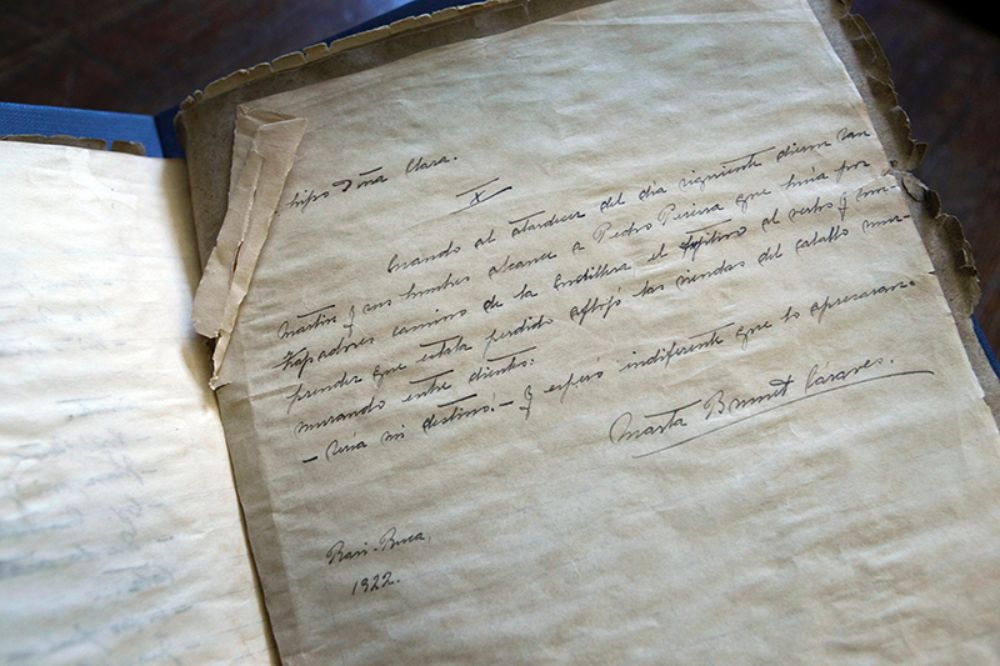 hipo Doña Clara.
X
Cuando al atardecer del día siguiente dieron San
Martín y sus hombres alcance a Pedro Pereira que huía por
trapadores camino de la Cordillera el fugitivo al verlos y com-
prender que estaba perdido aflojó las riendas del caballo mur-
murando entre dientes:
– Sería mi destino! – y esperó indiferente que lo apresaran.
Marta Brunet Cáraves.
Pari-Buca,
1922.